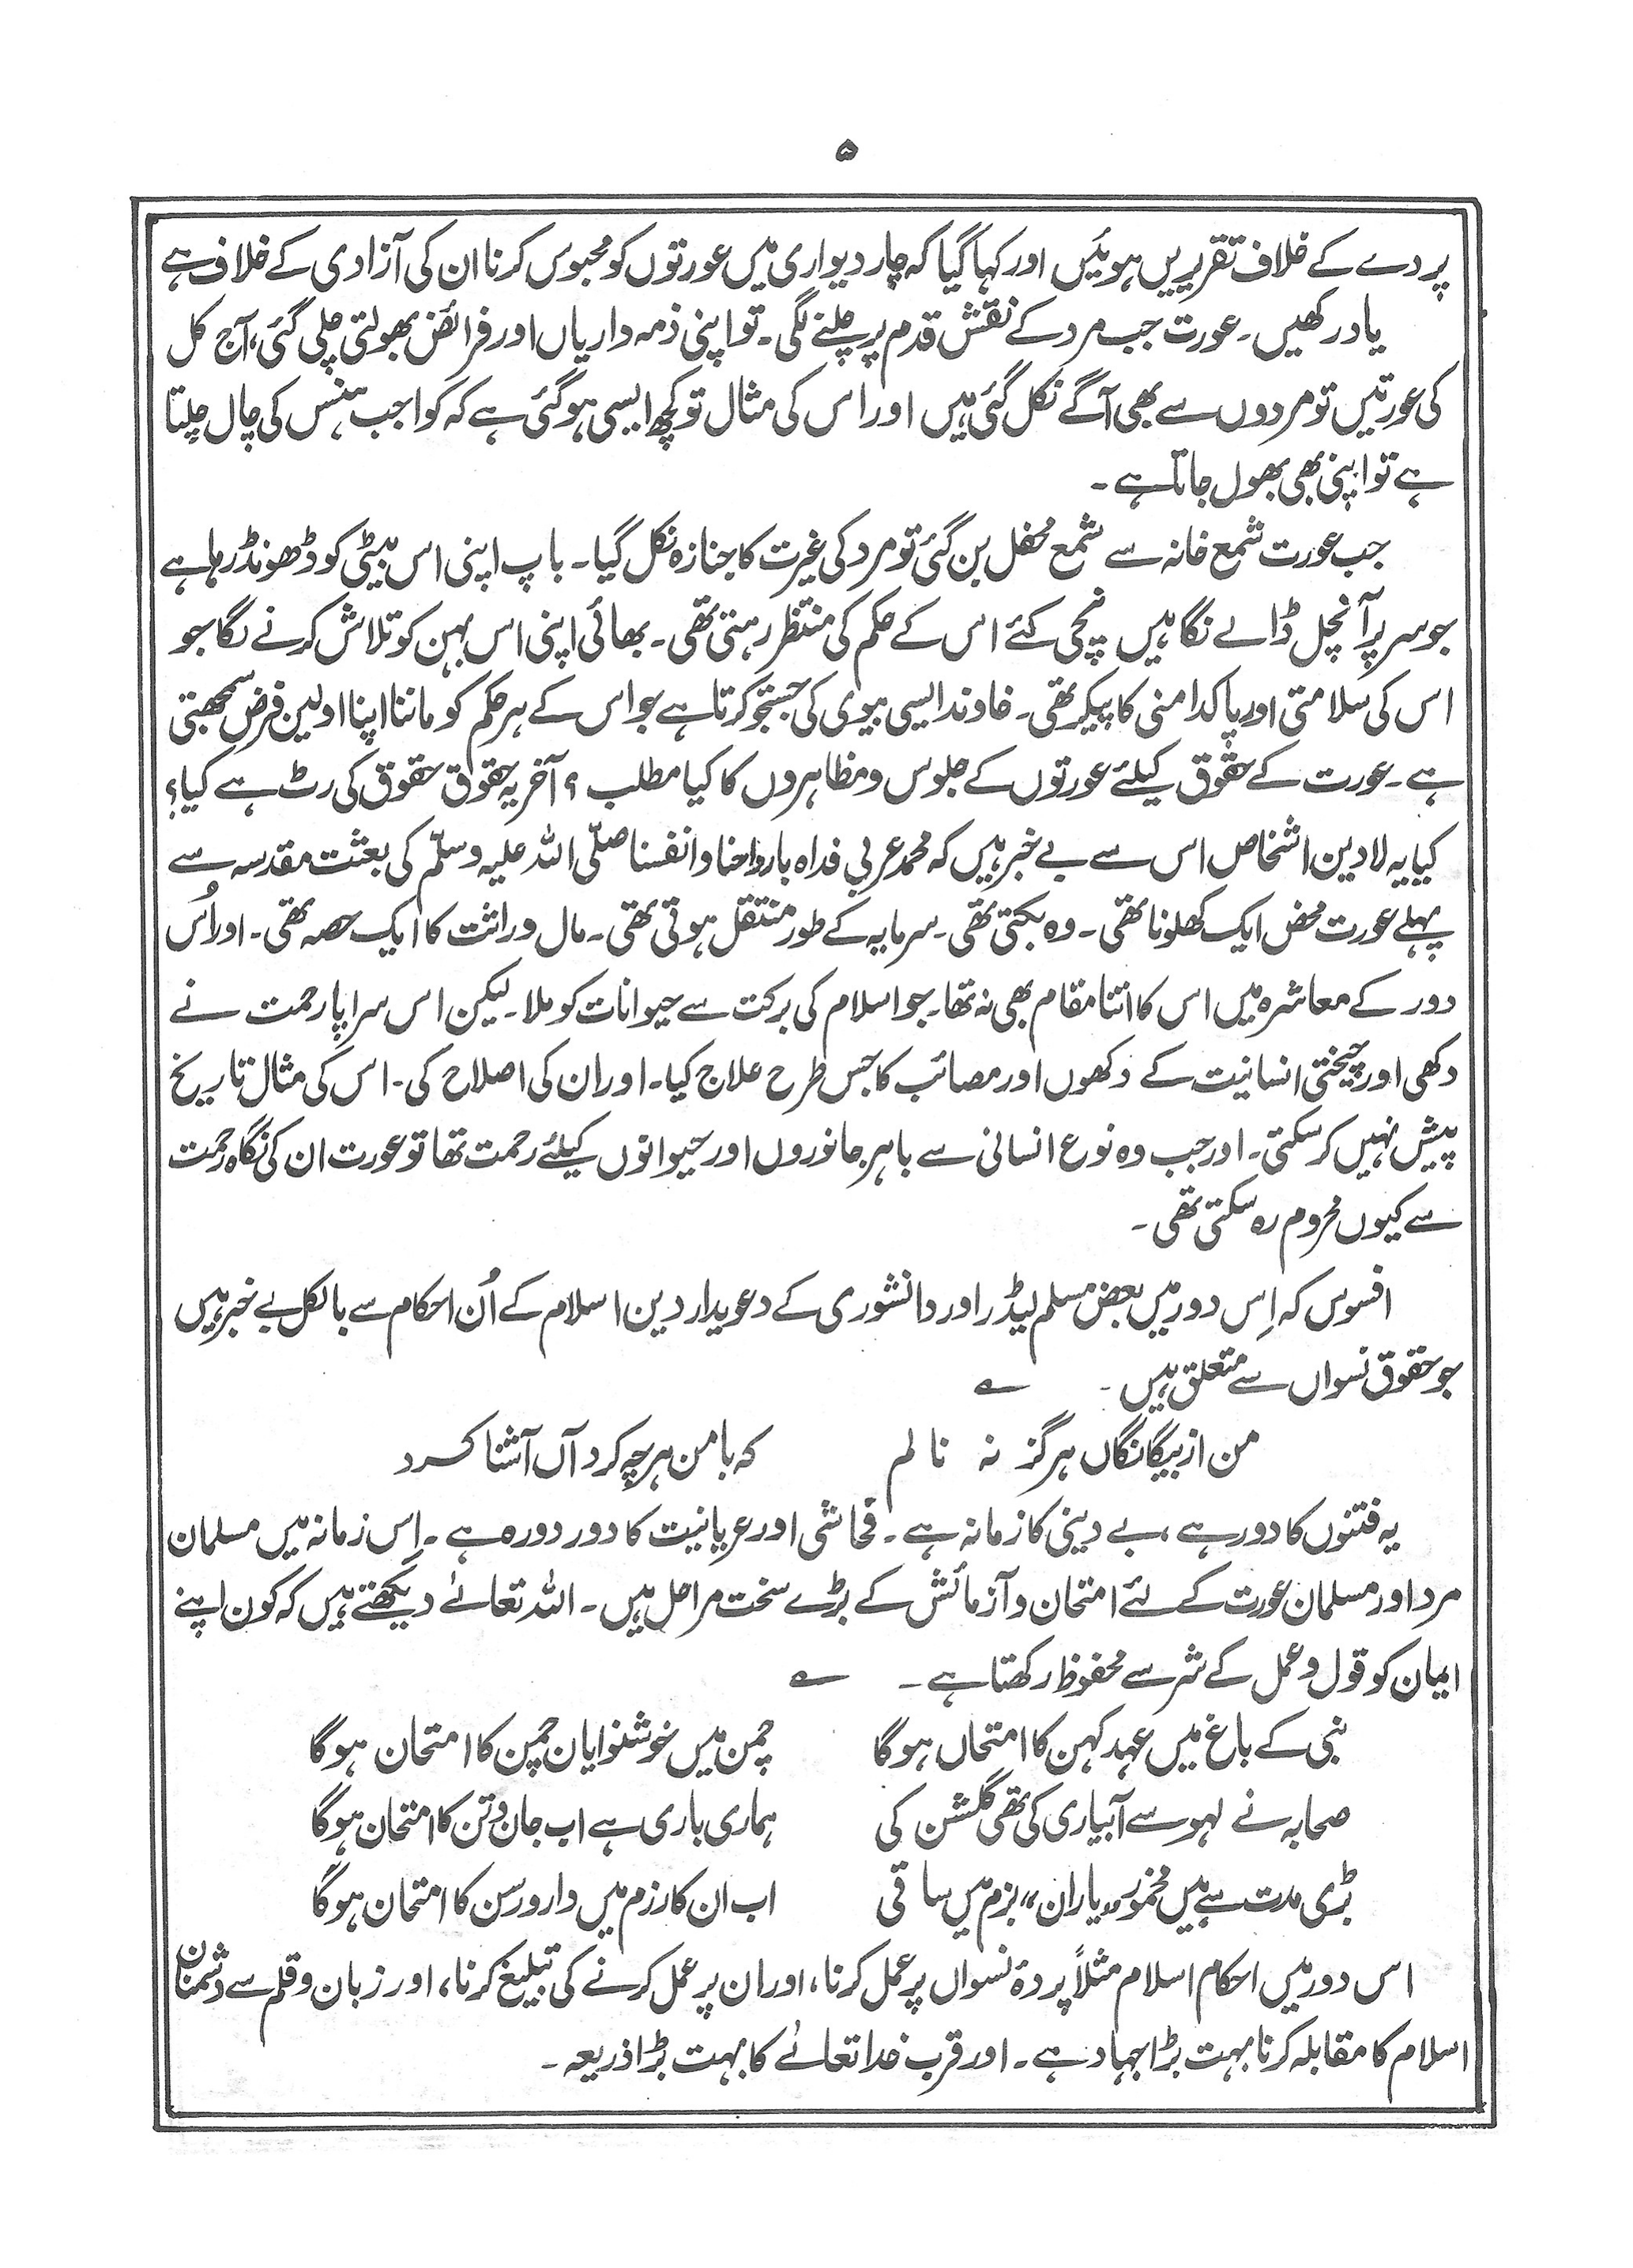 ۵
پردے کے خلاف تقریریں ہوئیں اور کہا گیا کہ چار دیواری میں عورتوں کو محبوس کرنا ان کی آزادی کے خلاف ہے
یاد رکھیں۔ عورت جب مرد کے نقش قدم پر چلنے لگی۔ تو اپنی ذمہ داریاں اور فرائض بھولتی چلی گئی، آج کل
کی عورتیں تو مردوں سے بھی آگے نکل گئی ہیں اور اس کی مثال تو کچھ ایسی ہو گئی ہے کہ کوا جب ہنس کی چال چلتا
ہے تو اپنی بھی بھول جاتا ہے۔
جب عورت شمع خانہ سے شمع محفل بن گئی تو مرد کی غیرت کا جنازہ نکل گیا۔ باپ اپنی اس بیٹی کو ڈھونڈ رہا ہے
جو سر پر آنچل ڈالے نگاہیں نیچی کئے اس کے حکم کی منتظر رہتی تھی۔ بھائی اپنی اس بہن کو تلاش کرنے لگا جو
اس کی سلامتی اور پاکدامنی کا پیکر تھی۔ خاوند ایسی بیوی کی جستجو کرتا ہے جو اس کے ہر حکم کو ماننا اپنا اولین فرض سمجھتی
ہے۔ عورت کے حقوق کیلئے عورتوں کے جلوس و مظاہروں کا کیا مطلب ؟ آخر یہ حقوق حقوق کی رٹ ہے کیا؟
کیا یہ لادین اشخاص اس سے بے خبر ہیں کہ محمد عربی فداہ بارواحنا وانفسنا صلّی اللہ علیہ وسلّم کی بعثت مقدسہ سے
پہلے عورت محض ایک کھلونا تھی۔ وہ بکتی تھی۔ سرمایہ کے طور منتقل ہوتی تھی۔ مال وراثت کا ایک حصہ تھی۔ اور اُس
دور کے معاشرہ میں اس کا اتنا مقام بھی نہ تھا۔ جو اسلام کی برکت سے حیوانات کو ملا۔ لیکن اس سراپا رحمت نے
دکھی اور چیختی انسانیت کے دکھوں اور مصائب کا جس طرح علاج کیا۔ اور ان کی اصلاح کی۔ اس کی مثال تاریخ
پیش نہیں کر سکتی۔ اور جب وہ نوع انسانی سے باہر جانوروں اور حیوانوں کیلئے رحمت تھا تو عورت ان کی نگاہ رحمت
سے کیوں محروم رہ سکتی تھی۔
افسوس کہ اِس دور میں بعض مسلم لیڈر اور دانشوری کے دعویدار دین اسلام کے اُن احکام سے بالکل بے خبر ہیں
جو حقوق نسواں سے متعلق ہیں۔ ؎
من از بیگانگاں ہرگز نہ نالم کہ با من ہر چہ کرد آں آشنا کرد
یہ فتنوں کا دور ہے، بے دینی کا زمانہ ہے۔ فحاشی اور عریانیت کا دور دورہ ہے۔ اِس زمانہ میں مسلمان
مرد اور مسلمان عورت کے لئے امتحان و آزمائش کے بڑے سخت مراحل ہیں۔ اللہ تعالیٰ دیکھتے ہیں کہ کون اپنے
ایمان کو قول و عمل کے شر سے محفوظ رکھتا ہے۔ ؎
نبی کے باغ میں عہد کہن کا امتحاں ہوگا چمن میں خوشنوایان چمن کا امتحان ہوگا
صحابہ نے لہو سے آبیاری کی تھی گلشن کی ہماری باری ہے اب جان و تن کا امتحان ہوگا
بڑی مدت سے ہیں مخمور "یاران" بزم میں ساقی اب ان کا رزم میں دار و رسن کا امتحان ہوگا
اس دور میں احکام اسلام مثلاً پردۂ نسواں پر عمل کرنا، اور ان پر عمل کرنے کی تبلیغ کرنا، اور زبان و قلم سے دشمنان
اسلام کا مقابلہ کرنا بہت بڑا جہاد ہے۔ اور قرب خدا تعالےٰ کا بہت بڑا ذریعہ۔